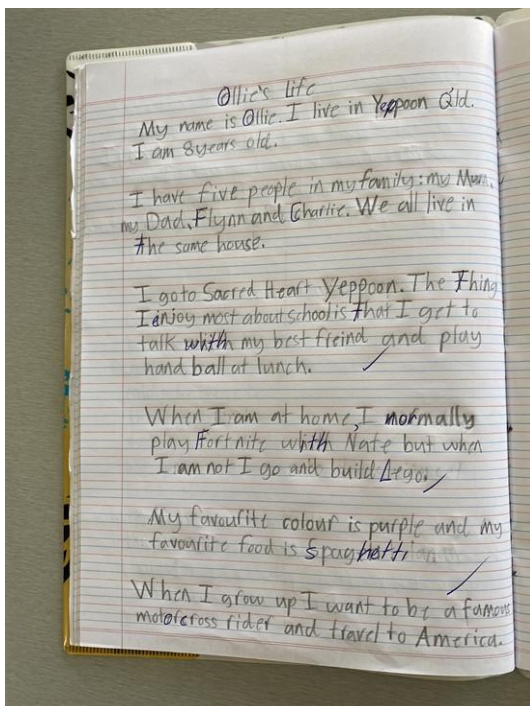 Ollie's Life
My name is Ollie. I live in Yeppoon Qld.
I am 8 years old.
I have five people in my family: my Mum,
my Dad, Flynn and Charlie. We all live in
the same house.
I go to Sacred Heart Yeppoon. The Thing
I enjoy most about school is that I get to
talk with my best freind and play
hand ball at lunch.
When I am at home, I normally
play Fortnite with Nate but when
I am not I go and build Lego.
My favourite colour is purple and my
favourite food is Spaghetti
When I grow up I want to be a famous
motorcross rider and travel to America.